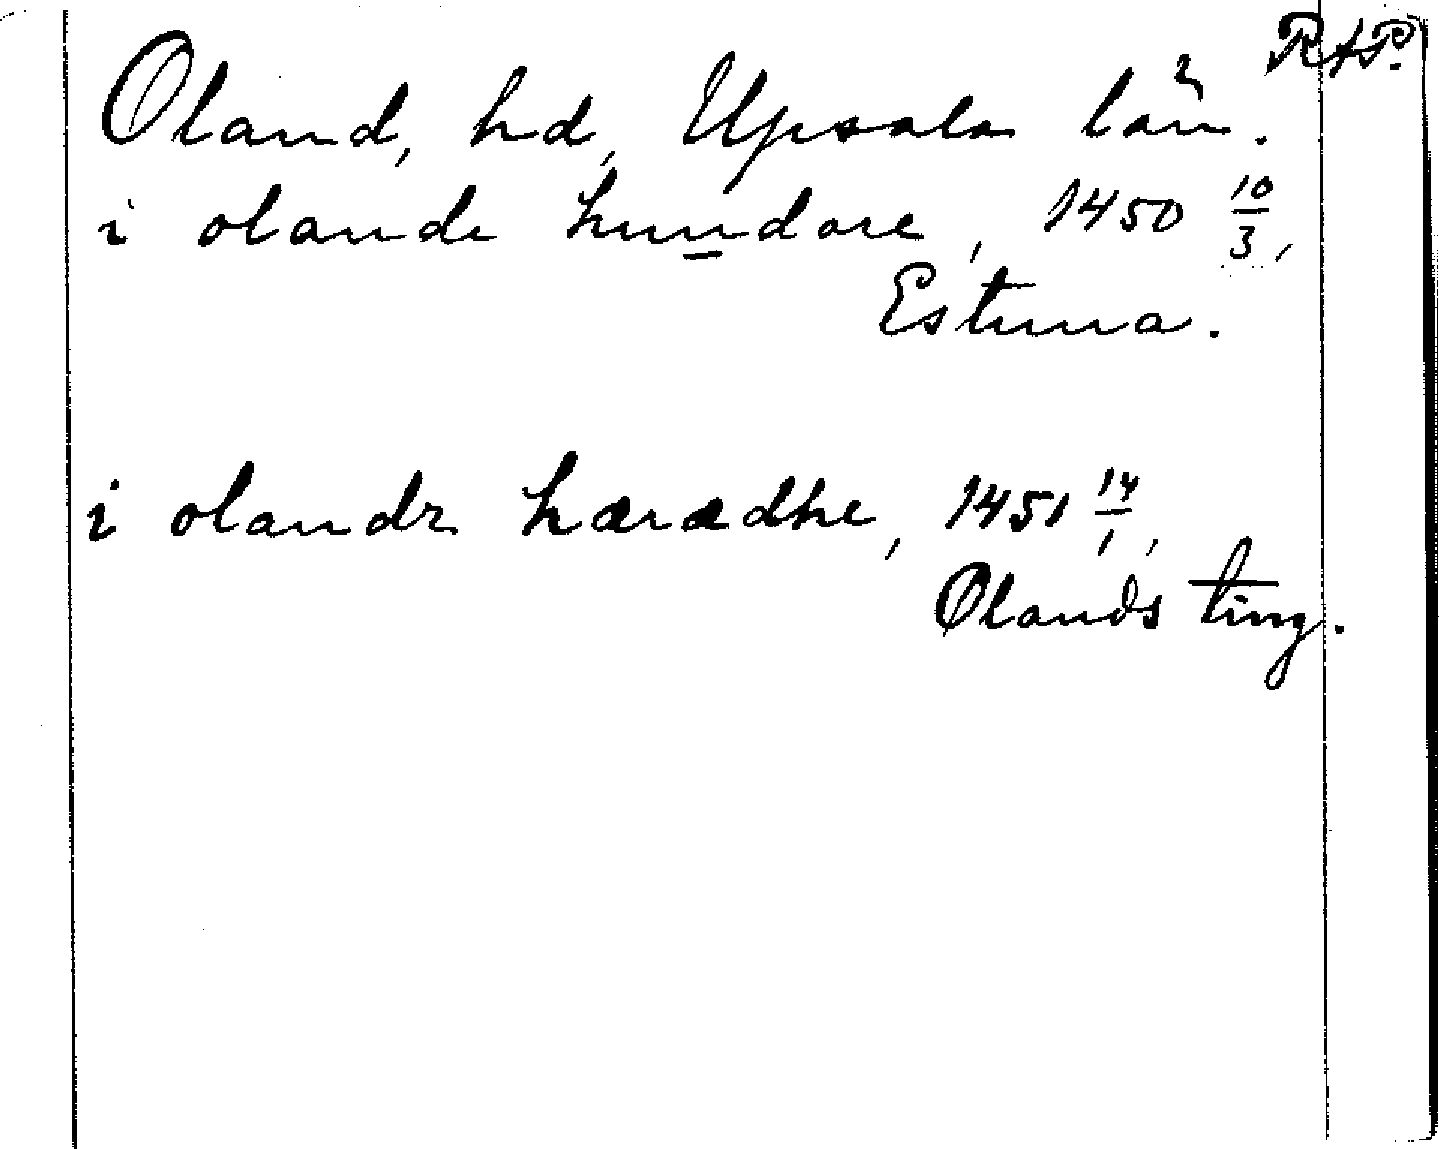 RAP.
Oland, hd, Upsala län.
i olande hundare, 1450 10/3,
Estuna.
i olandz hæradhe, 1451 14/1,
Olands ting.